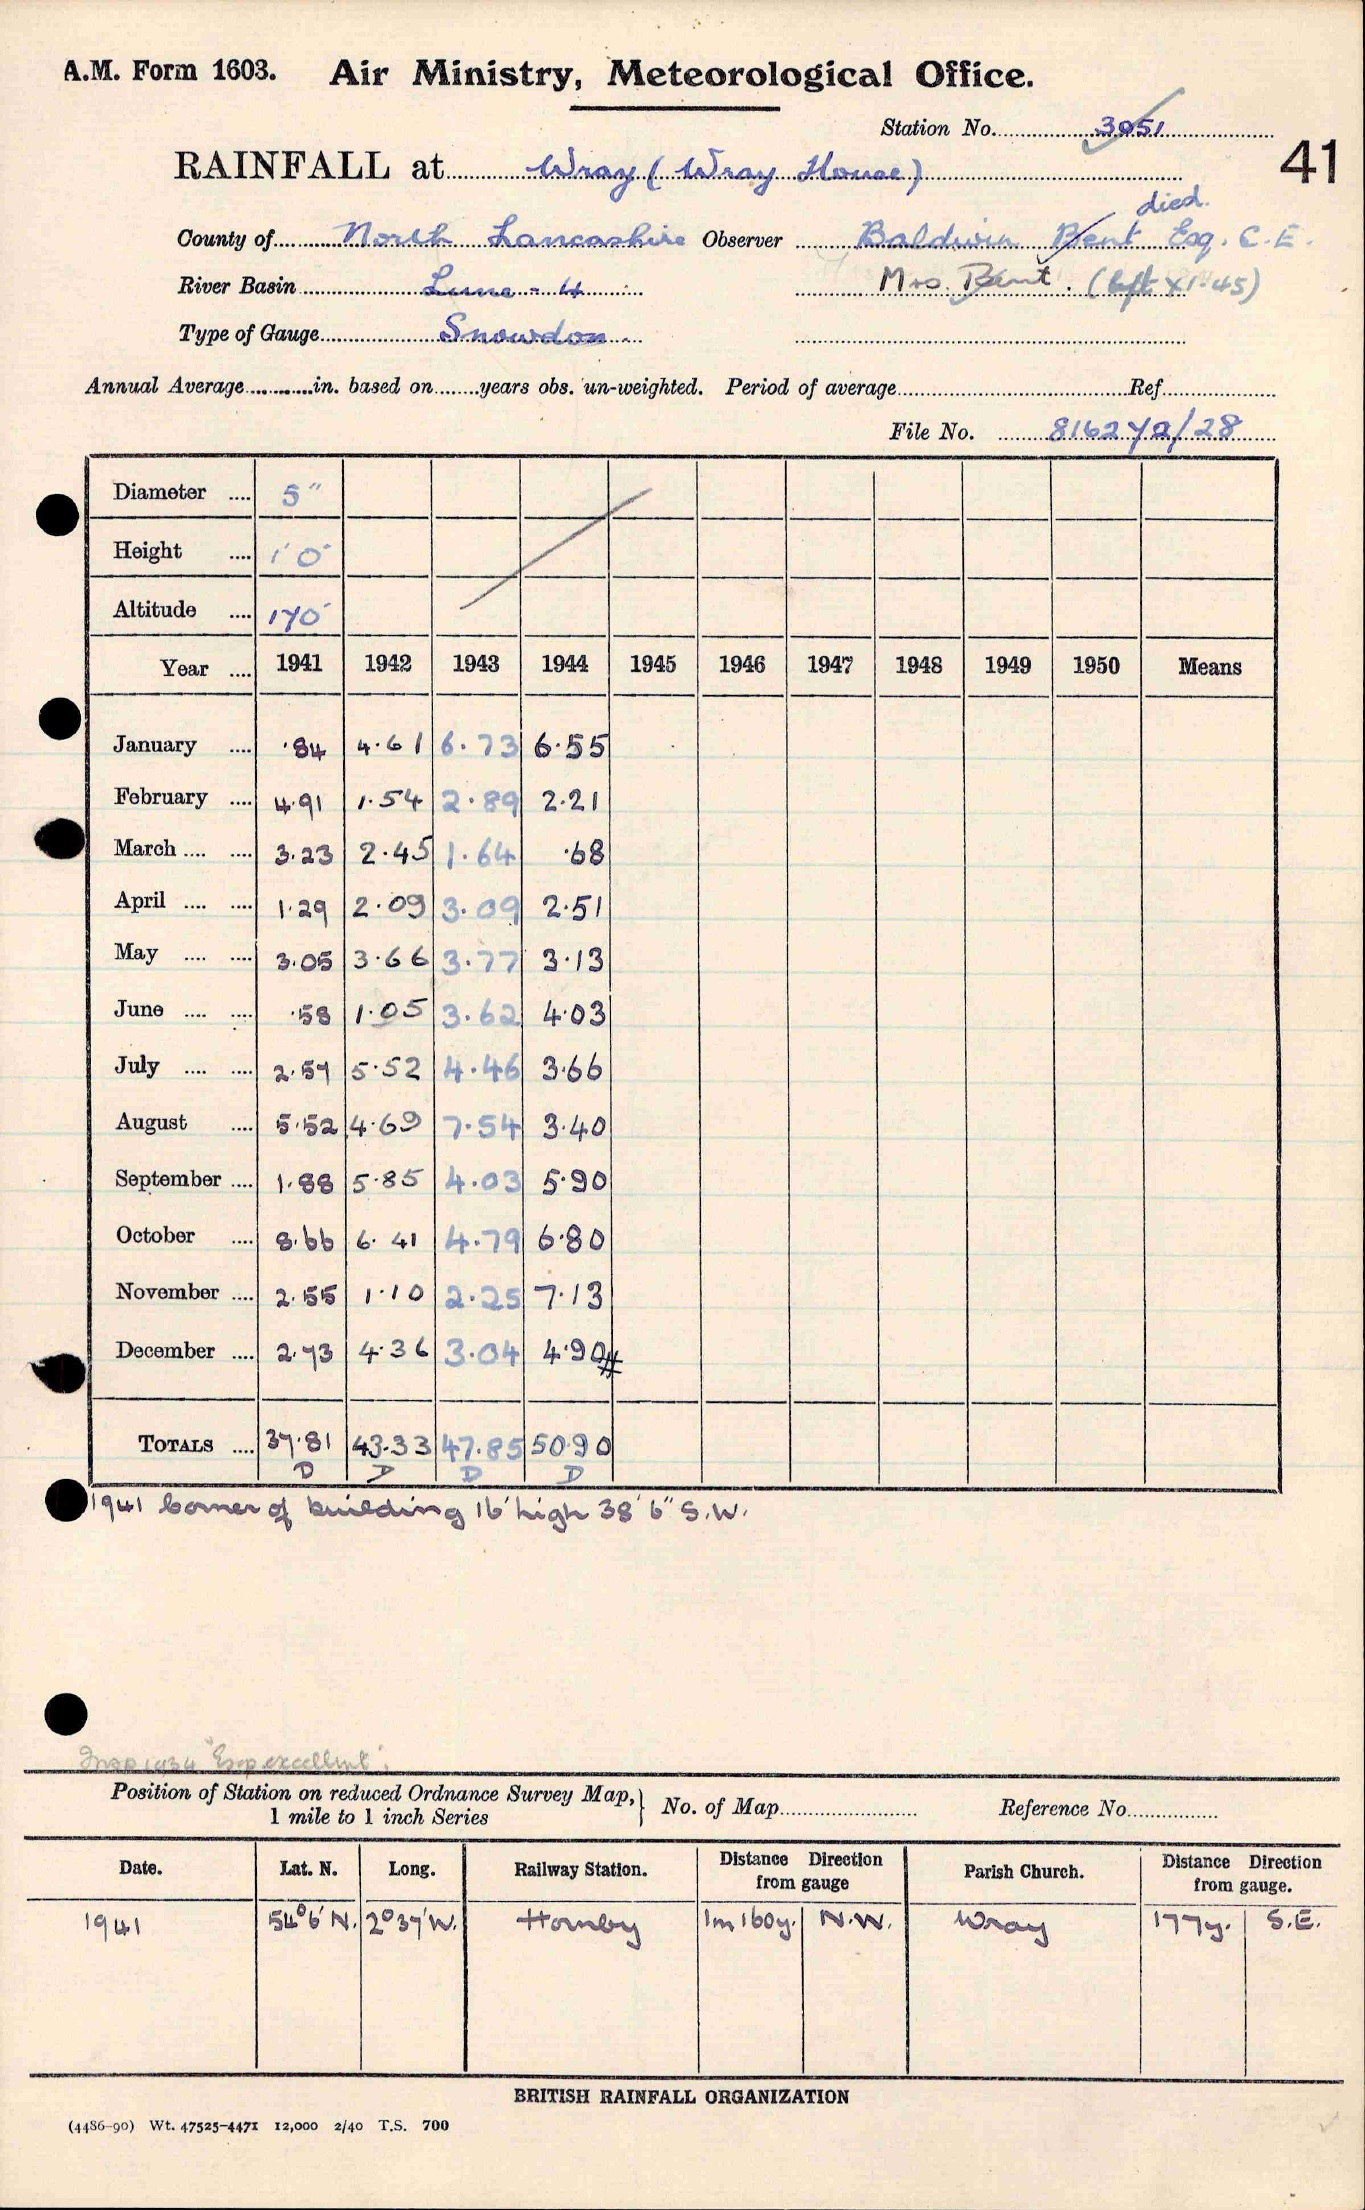 A.M. Form 1603. Air Ministry, Meteorological Office.
Station No. 3051
41
RAINFALL at Wray (Wray House)
died.
County of North Lancashire Observer Baldwin Bent Esq. C.E.
River Basin Lune - 4 Mrs. Bent. (left XI.45)
Type of Gauge Snowdon
Annual Average in. based on years obs. un-weighted. Period of average Ref.
File No. 81627/2/28
Diameter .... 5"
Height .... 1'0"
Altitude .... 170'
Year .... 1941 1942 1943 1944 1945 1946 1947 1948 1949 1950 Means
January .... ·84 4·61 6·73 6·55
February .... 4·91 1·54 2·89 2·21
March .... .... 3·23 2·45 1·64 ·68
April .... .... 1·29 2·09 3·09 2·51
May .... .... 3·05 3·66 3·77 3·13
June .... .... ·58 1·05 3·62 4·03
July .... .... 2·57 5·52 4·46 3·66
August .... 5·52 4·69 7·54 3·40
September .... 1·88 5·85 4·03 5·90
October .... 8·66 6·41 4·79 6·80
November .... 2·55 1·10 2·25 7·13
December .... 2·73 4·36 3·04 4·90#
TOTALS .... 37·81 43·33 47·85 50·90
D D D D
1941 Corner of building 16' high 38'6" S.W.
Insp 1934 "Exp excellent".
Position of Station on reduced Ordnance Survey Map, } No. of Map Reference No.
1 mile to 1 inch Series
Date. Lat. N. Long. Railway Station. Distance Direction from gauge Parish Church. Distance Direction from gauge.
1941 54°6'N. 2°37'W. Hornby 1m 160y. N.W. Wray 177y. S.E.
BRITISH RAINFALL ORGANIZATION
(4486-90) Wt. 47525-4471 12,000 2/40 T.S. 700